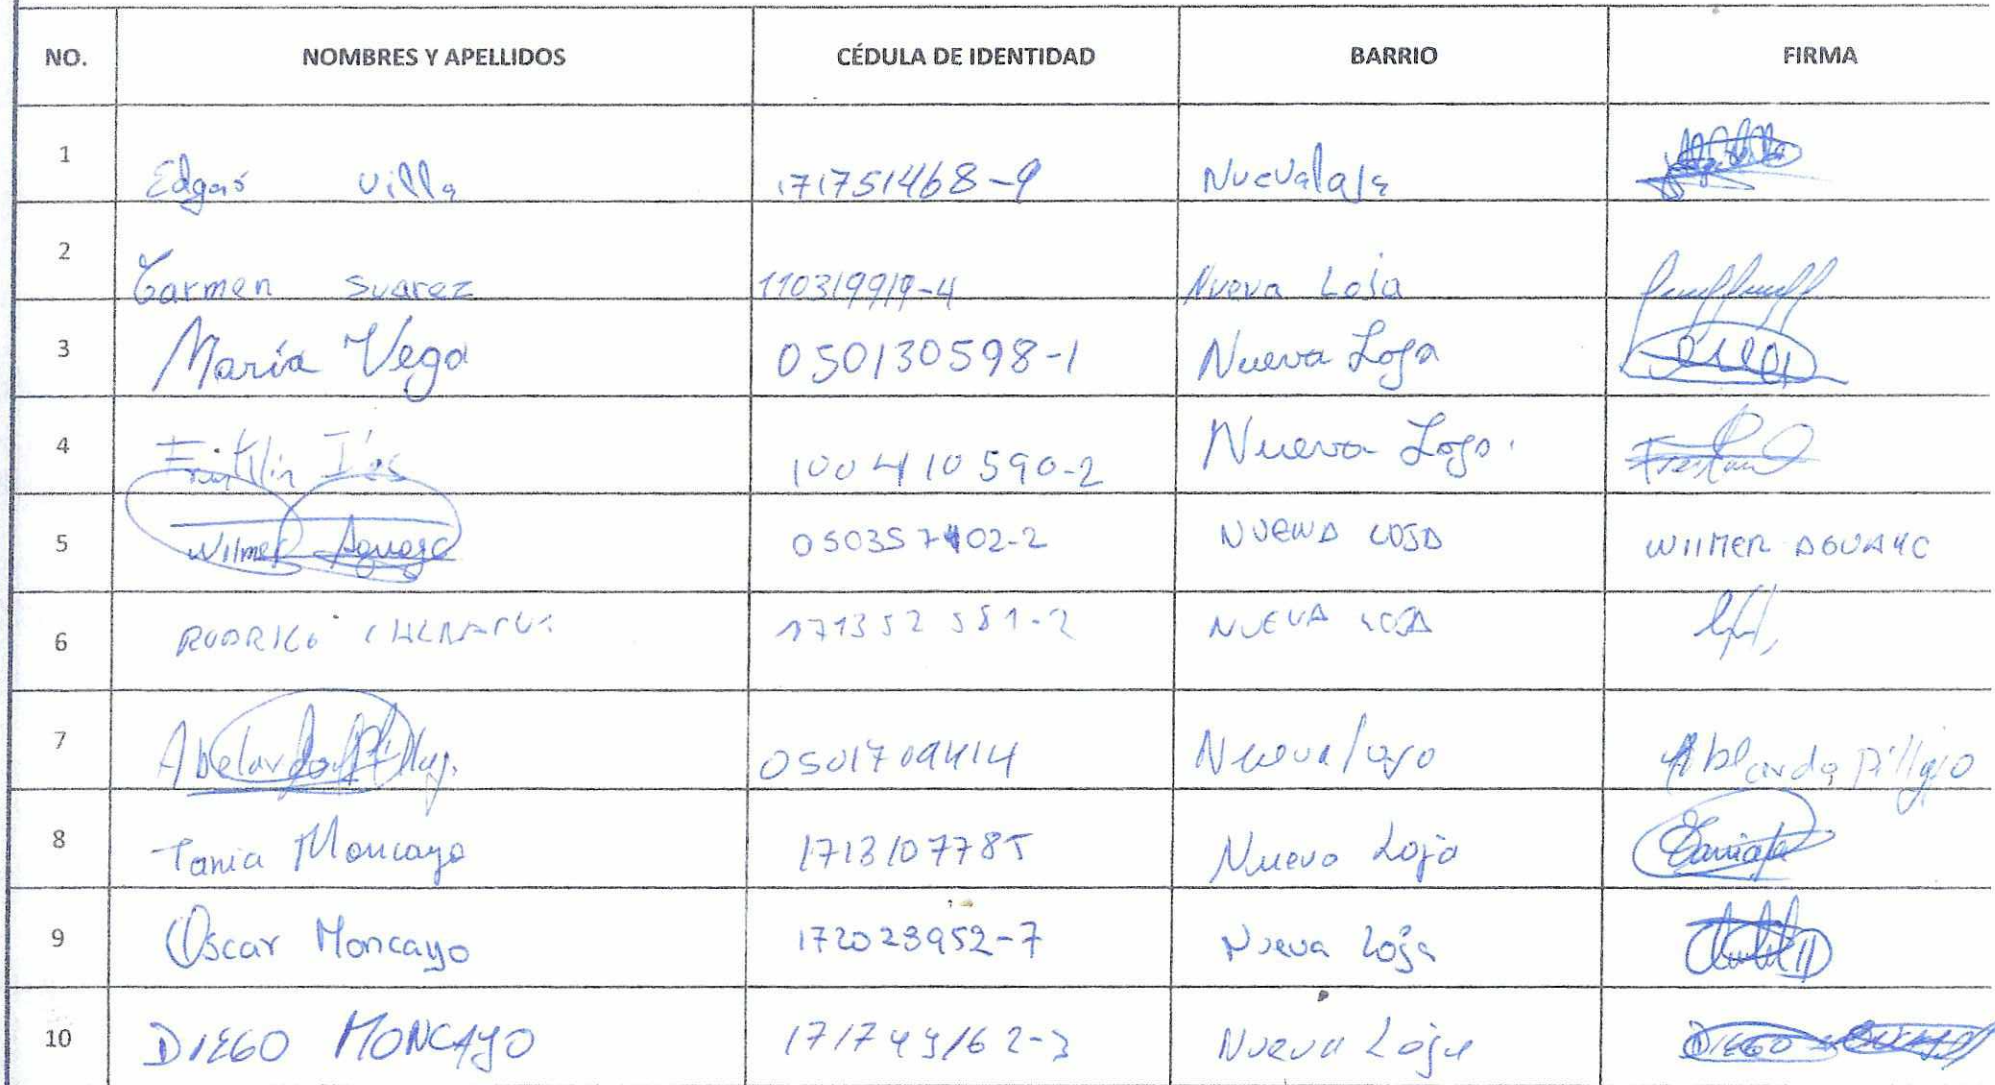 NO. NOMBRES Y APELLIDOS CÉDULA DE IDENTIDAD BARRIO FIRMA
1 Edgar Villa 171751468-9 Nuevaloja
2 Carmen Suarez 110319919-4 Nueva Loja
3 María Vega 050130598-1 Nueva Loja
4 100410590-2 Nueva Loja
5 Wilmer Aguayo 050357402-2 NUEVA LOJA WILMER AGUAYO
6 RODRIGO 171352581-2 NUEVA LOJA
7 Abelardo 0501709414 Nueva loja Abelardo Pillajo
8 Tania Moncayo 1713107785 Nueva Loja
9 Oscar Moncayo 172023952-7 Nueva Loja
10 DIEGO MONCAYO 171749162-3 Nueva Loja DIEGO